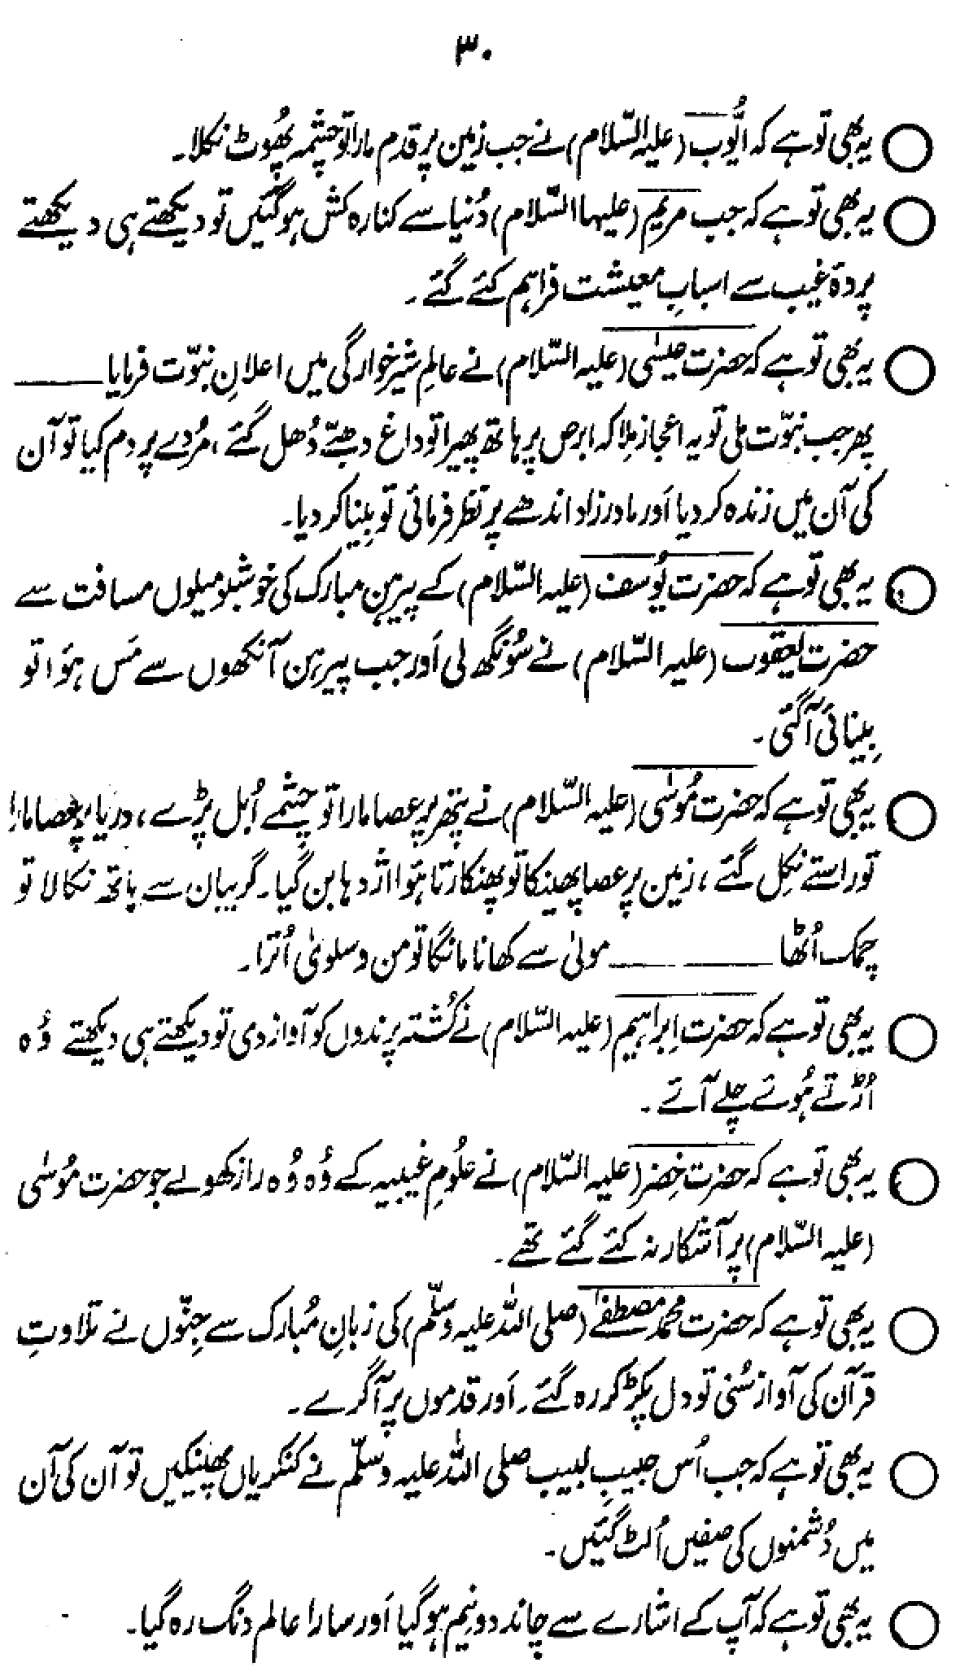 ۳۰
یہ بھی تو ہے کہ ایُّوب (علیہ السّلام) نے جب زمین پر قدم مارا تو چشمہ پھُوٹ نکلا۔
یہ بھی تو ہے کہ جب مریم (علیہا السّلام) دُنیا سے کنارہ کش ہو گئیں تو دیکھتے ہی دیکھتے
پردۂ غیب سے اسبابِ معیشت فراہم کئے گئے۔
یہ بھی تو ہے کہ حضرت عیسٰی (علیہ السّلام) نے عالمِ شیرخوارگی میں اعلانِ نبوّت فرمایا ــــــ
پھر جب نبوّت ملی تو یہ اعجاز ملا کہ ابرص پر ہاتھ پھیرا تو داغ دھبّے دُھل گئے، مُردے پر دم کیا تو آن
کی آن میں زندہ کر دیا اَور مادرزاد اندھے پر نظر فرمائی تو بِینا کر دیا۔
یہ بھی تو ہے کہ حضرت یُوسف (علیہ السّلام) کے پیرہنِ مبارک کی خوشبو میلوں مسافت سے
حضرت یعقوب (علیہ السّلام) نے سُونگھ لی اَور جب پیرہن آنکھوں سے مَس ہؤا تو
بِینائی آ گئی۔
یہ بھی تو ہے کہ حضرت مُوسٰی (علیہ السّلام) نے پتھر پر عصا مارا تو چشمے اُبل پڑے، دریا پر عصا مارا
تو راستے نکِل گئے، زمین پر عصا پھینکا تو پھنکارتا ہؤا اژدہا بن گیا۔ گریبان سے ہاتھ نکالا تو
چمک اُٹھا ــــــ ــــــ مولیٰ سے کھانا مانگا تو من و سلویٰ اُترا۔
یہ بھی تو ہے کہ حضرت اِبراہیم (علیہ السّلام) نے کُشتہ پرندوں کو آواز دی تو دیکھتے ہی دیکھتے وُہ
اُڑتے ہُوئے چلے آئے۔
یہ بھی تو ہے کہ حضرت خِضر (علیہ السّلام) نے علُومِ غیبیہ کے وُہ وُہ راز کھولے جو حضرت مُوسٰی
(علیہ السّلام) پر آشکار نہ کئے گئے تھے۔
یہ بھی تو ہے کہ حضرت محمد مصطفٰے (صلی اللہ علیہ وسلّم) کی زبانِ مُبارک سے جِنّوں نے تلاوتِ
قرآن کی آواز سُنی تو دل پکڑ کر رہ گئے۔ اَور قدموں پر آ گرے۔
یہ بھی تو ہے کہ جب اُس حبیبِ لبیب صلی اللہ علیہ وسلّم نے کنکریاں پھینکیں تو آن کی آن
میں دُشمنوں کی صفیں اُلٹ گئیں۔
یہ بھی تو ہے کہ آپ کے اشارے سے چاند دو نیم ہو گیا اَور سارا عالم دنگ رہ گیا۔